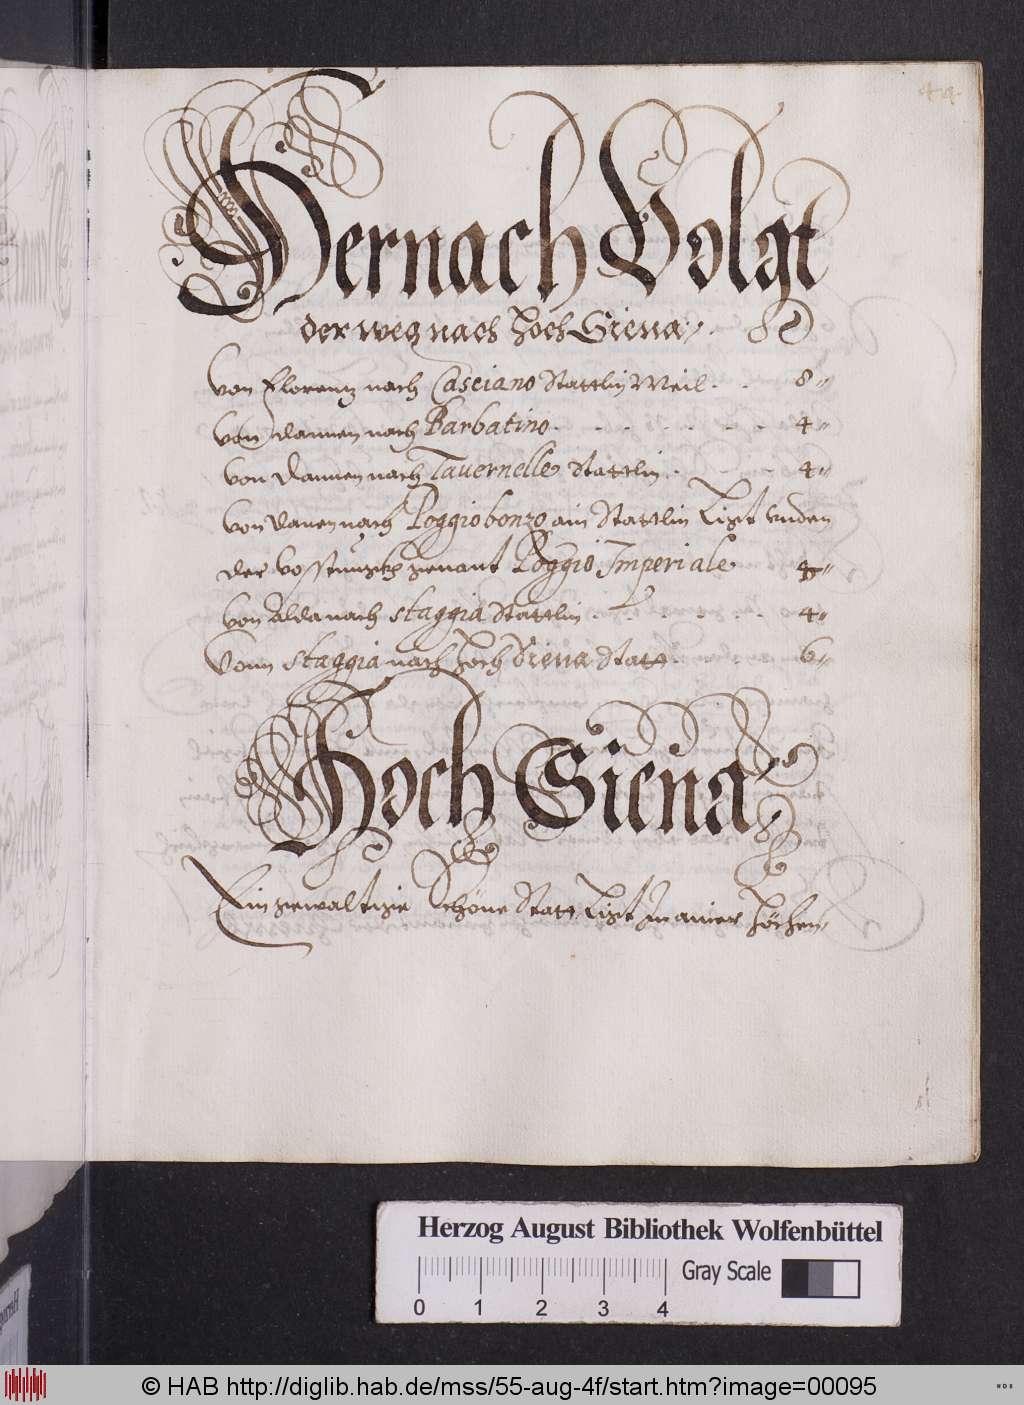 44
Hernach Volgt
der weg nach Hoch Siena
Von Florentz nach Casciano Stattlin Meil . . 8
von dannen nach Barbatino . . . . . . . 4
von dannen nach Tauernelle Stattlin . . . 4
von danen nach Poggiobonzo ain Stattlin Ligt vnden
der Vosstung genant Poggio Imperiale
von Alda nach Staggia Stattlin . . . . . 4
Vonn Staggia nach Hoch Siena Statt . . . 6
Hoch Siena
Ein gewaltige Schöne Statt Ligt In ainer Höchen
Herzog August Bibliothek Wolfenbüttel
0 1 2 3 4 Gray Scale
© HAB http://diglib.hab.de/mss/55-aug-4f/start.htm?image=00095